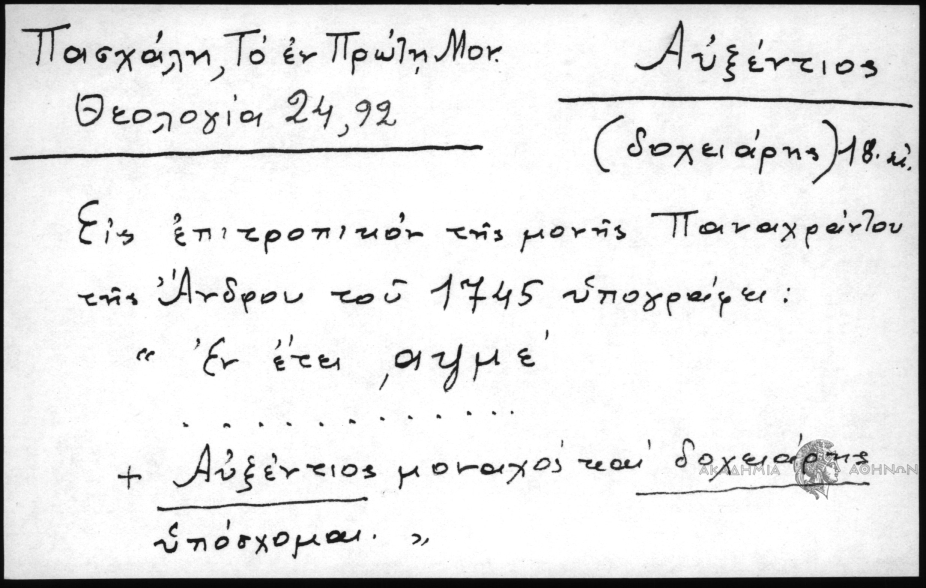 Πασχάλη, Τό ἐν Πρώτῃ Μον.
Θεολογία 24, 92
Αὐξέντιος
(δοχειάρης) 18. αἰ.
Εἰς ἐπιτροπικόν τῆς μονῆς Παναχράντου
τῆς Ἄνδρου τοῦ 1745 ὑπογράφει:
“ Ἐν ἔτει ͵αψμε΄
. . . . . . . . . . . . .
+ Αὐξέντιος μοναχός καί δοχειάρης
ὑπόσχομαι. ”
ΑΚΑΔΗΜΙΑ ΑΘΗΝΩΝ